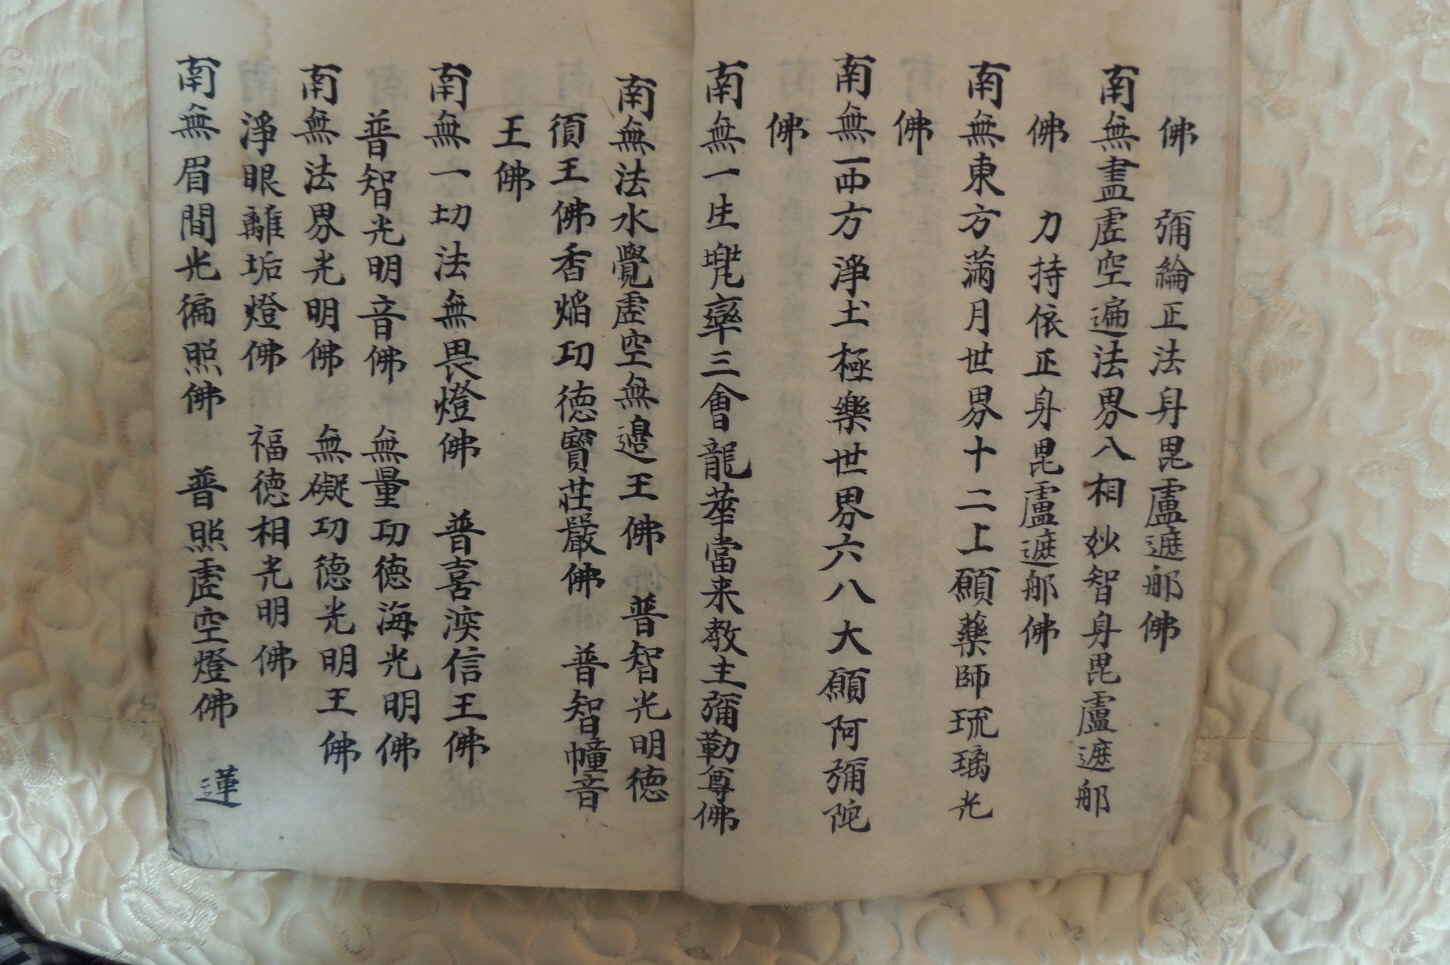 佛　彌綸正法身毘盧遮那佛
南無盡虛空遍法界八相妙智身毘盧遮那
佛　力持依正身毘盧遮那佛
南無東方滿月世界十二上願藥師琉璃光
佛
南無西方淨土極樂世界六八大願阿彌陀
佛
南無一生兠率三會龍華當来教主彌勒尊佛
南無法水覺虛空無邉王佛　普智光明德
須王佛香焔功德寶莊嚴佛　普智幢音
王佛
南無一切法無畏燈佛　普喜深信王佛
普智光明音佛　無量功德海光明佛
南無法界光明佛　無礙功德光明王佛
淨眼離垢燈佛　福德相光明佛
南無眉間光徧照佛　普照虛空燈佛　蓮